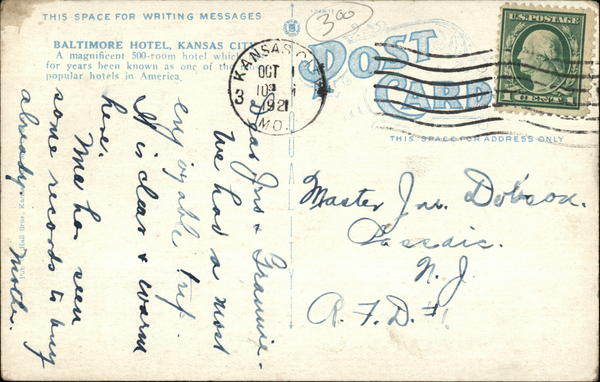 THIS SPACE FOR WRITING MESSAGES
BALTIMORE HOTEL, KANSAS CITY
A magnificent 500-room hotel which
for years been known as one of the
popular hotels in America.
Jno & Grannie -
We had a most
enjoyable trip.
It is clear & warm
here.
Ma has seen
some records to buy
already.
300
POST CARD
KANSAS CITY
OCT
1921
MO.
3
U.S. POSTAGE
THIS SPACE FOR ADDRESS ONLY
Master Jno. Dobson.
Passaic.
N. J.
R. F. D. #1.